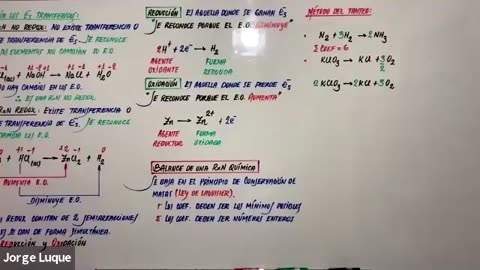 LOS ES TRANSFERIDOS:
RxN NO REDOX: NO EXISTE TRANSFERENCIA O
DE TRANSFERENCIA DE ES. SE RECONOCE
LOS ELEMENTOS NO CAMBIAN SU E.O.
+ NaOH → NaCl + H2O
NO HAY CAMBIO EN LOS E.O.
∴ ES UNA RxN NO REDOX.
RxN REDOX: EXISTE TRANSFERENCIA O
DE TRANSFERENCIA DE ES. SE RECONOCE
CAMBIA LOS E.O.
+ HCl(ac) → ZnCl2 + H2
AUMENTA E.O.
DISMINUYE E.O.
REDOX CONSTAN DE 2 SEMIREACCIONES
SE DAN DE FORMA SIMULTÁNEA.
REDUCCIÓN Y OXIDACIÓN
REDUCCIÓN ES AQUELLA DONDE SE GANAN ES
SE RECONOCE PORQUE EL E.O. "DISMINUYE"
2H+ + 2e- → H2
AGENTE OXIDANTE FORMA REDUCIDA
OXIDACIÓN ES AQUELLA DONDE SE PIERDE ES
"SE RECONOCE PORQUE EL E.O. AUMENTA"
Zn → Zn2+ + 2e-
AGENTE REDUCTOR FORMA OXIDADA
BALANCE DE UNA RxN QUÍMICA
SE BASA EN EL PRINCIPIO DE CONSERVACIÓN DE
MASAS (LEY DE LAVOISIER).
LOS COEF. DEBEN SER LOS MÍNIMOS POSIBLES
LOS COEF. DEBEN SER NÚMEROS ENTEROS
MÉTODO DEL TANTEO:
• N2 + 3H2 → 2NH3
Σ COEF = 6
• KClO3 → KCl + 3/2 O2
2KClO3 → 2KCl + 3O2
Jorge Luque